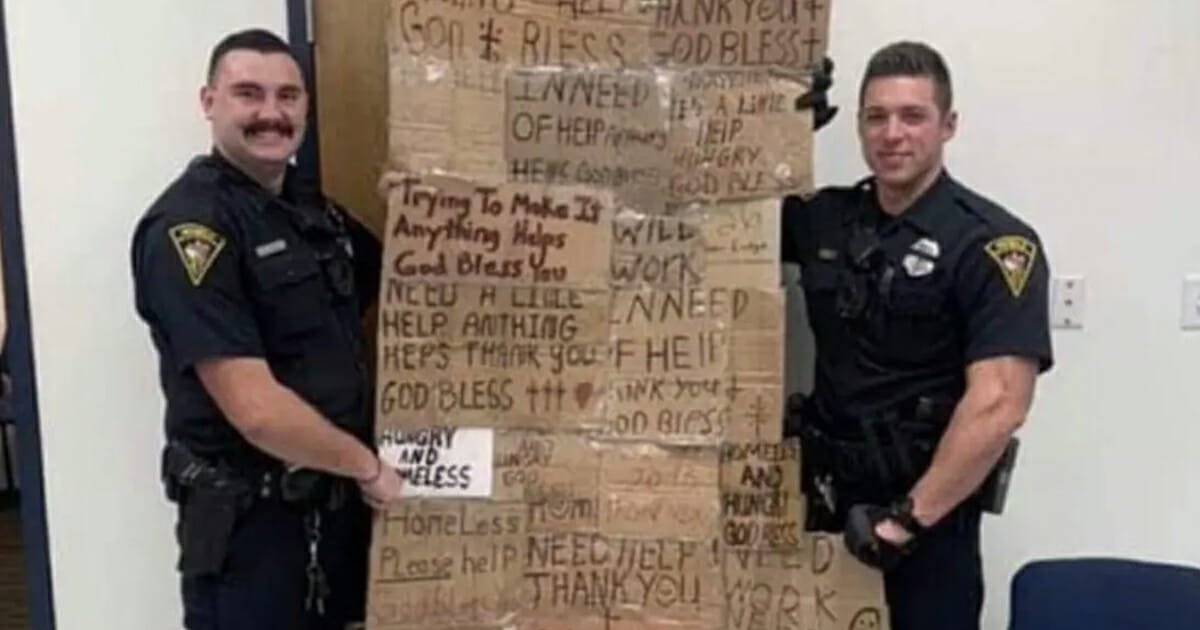 HELP
GOD BLESS
THANK YOU ✝
GOD BLESS ✝
IN NEED
OF HELP
HEPS GOD BLESS
IT'S A LITTLE
HELP
HUNGRY
GOD BLESS
Trying To Make It
Anything Helps
God Bless You
WILL
WORK
NEED A LITTLE
HELP ANTHING
HEPS THANK YOU
GOD BLESS ✝✝✝ ♥
IN NEED
OF HELP
THANK YOU ✝
GOD BLESS
HUNGRY
AND
HOMELESS
HOMELESS
AND
HUNGRY
GOD BLESS
HomeLess
Please help
God bless
THANK YOU
NEED HELP
THANK YOU
NEED
WORK